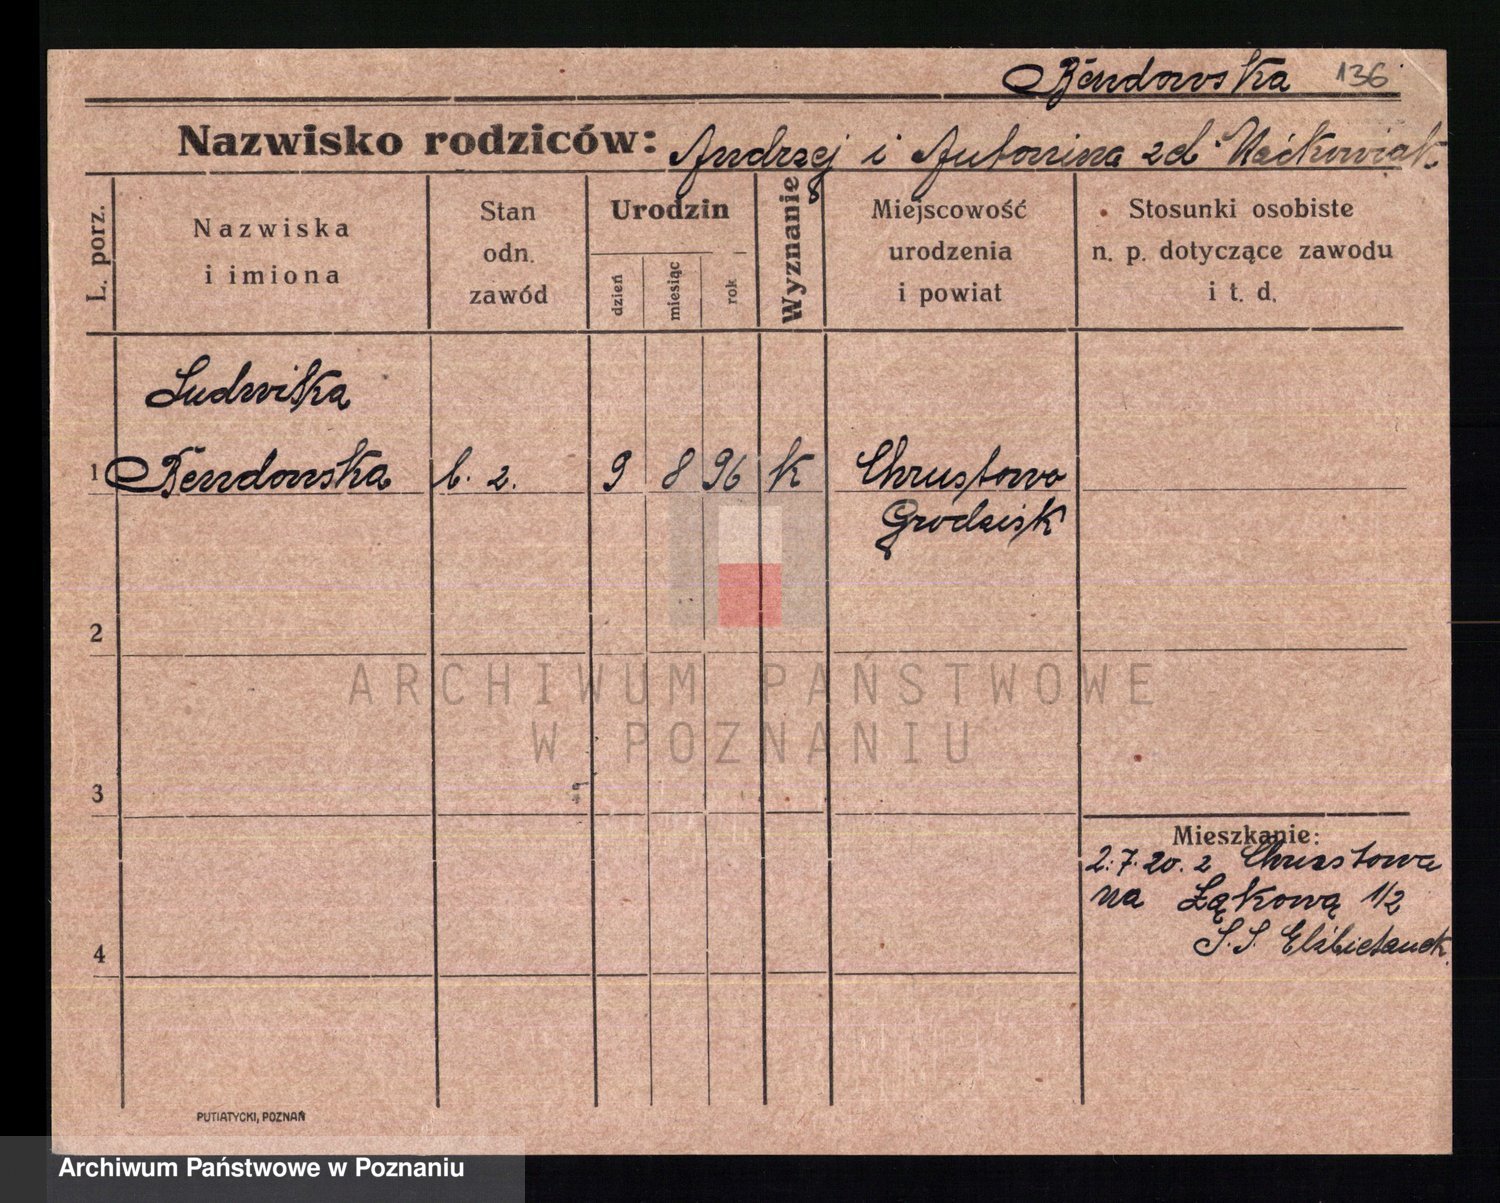 Bendowska 136
Nazwisko rodziców: Andrzej i Antonina zd. Maćkowiak
L. porz.
Nazwiska
i imiona
Stan
odn.
zawód
Urodzin
dzień
miesiąc
rok
Wyznanie
Miejscowość
urodzenia
i powiat
Stosunki osobiste
n. p. dotyczące zawodu
i t. d.
Ludwika
1 Bendowska b. z. 9 8 96 K Chrustowo
Grodzisk
2
ARCHIWUM PAŃSTWOWE
W POZNANIU
3
Mieszkanie:
2.7.20. z Chrustowa
na Łąkową 1/2
S. S. Elżbietanek
4
PUTIATYCKI, POZNAŃ
Archiwum Państwowe w Poznaniu